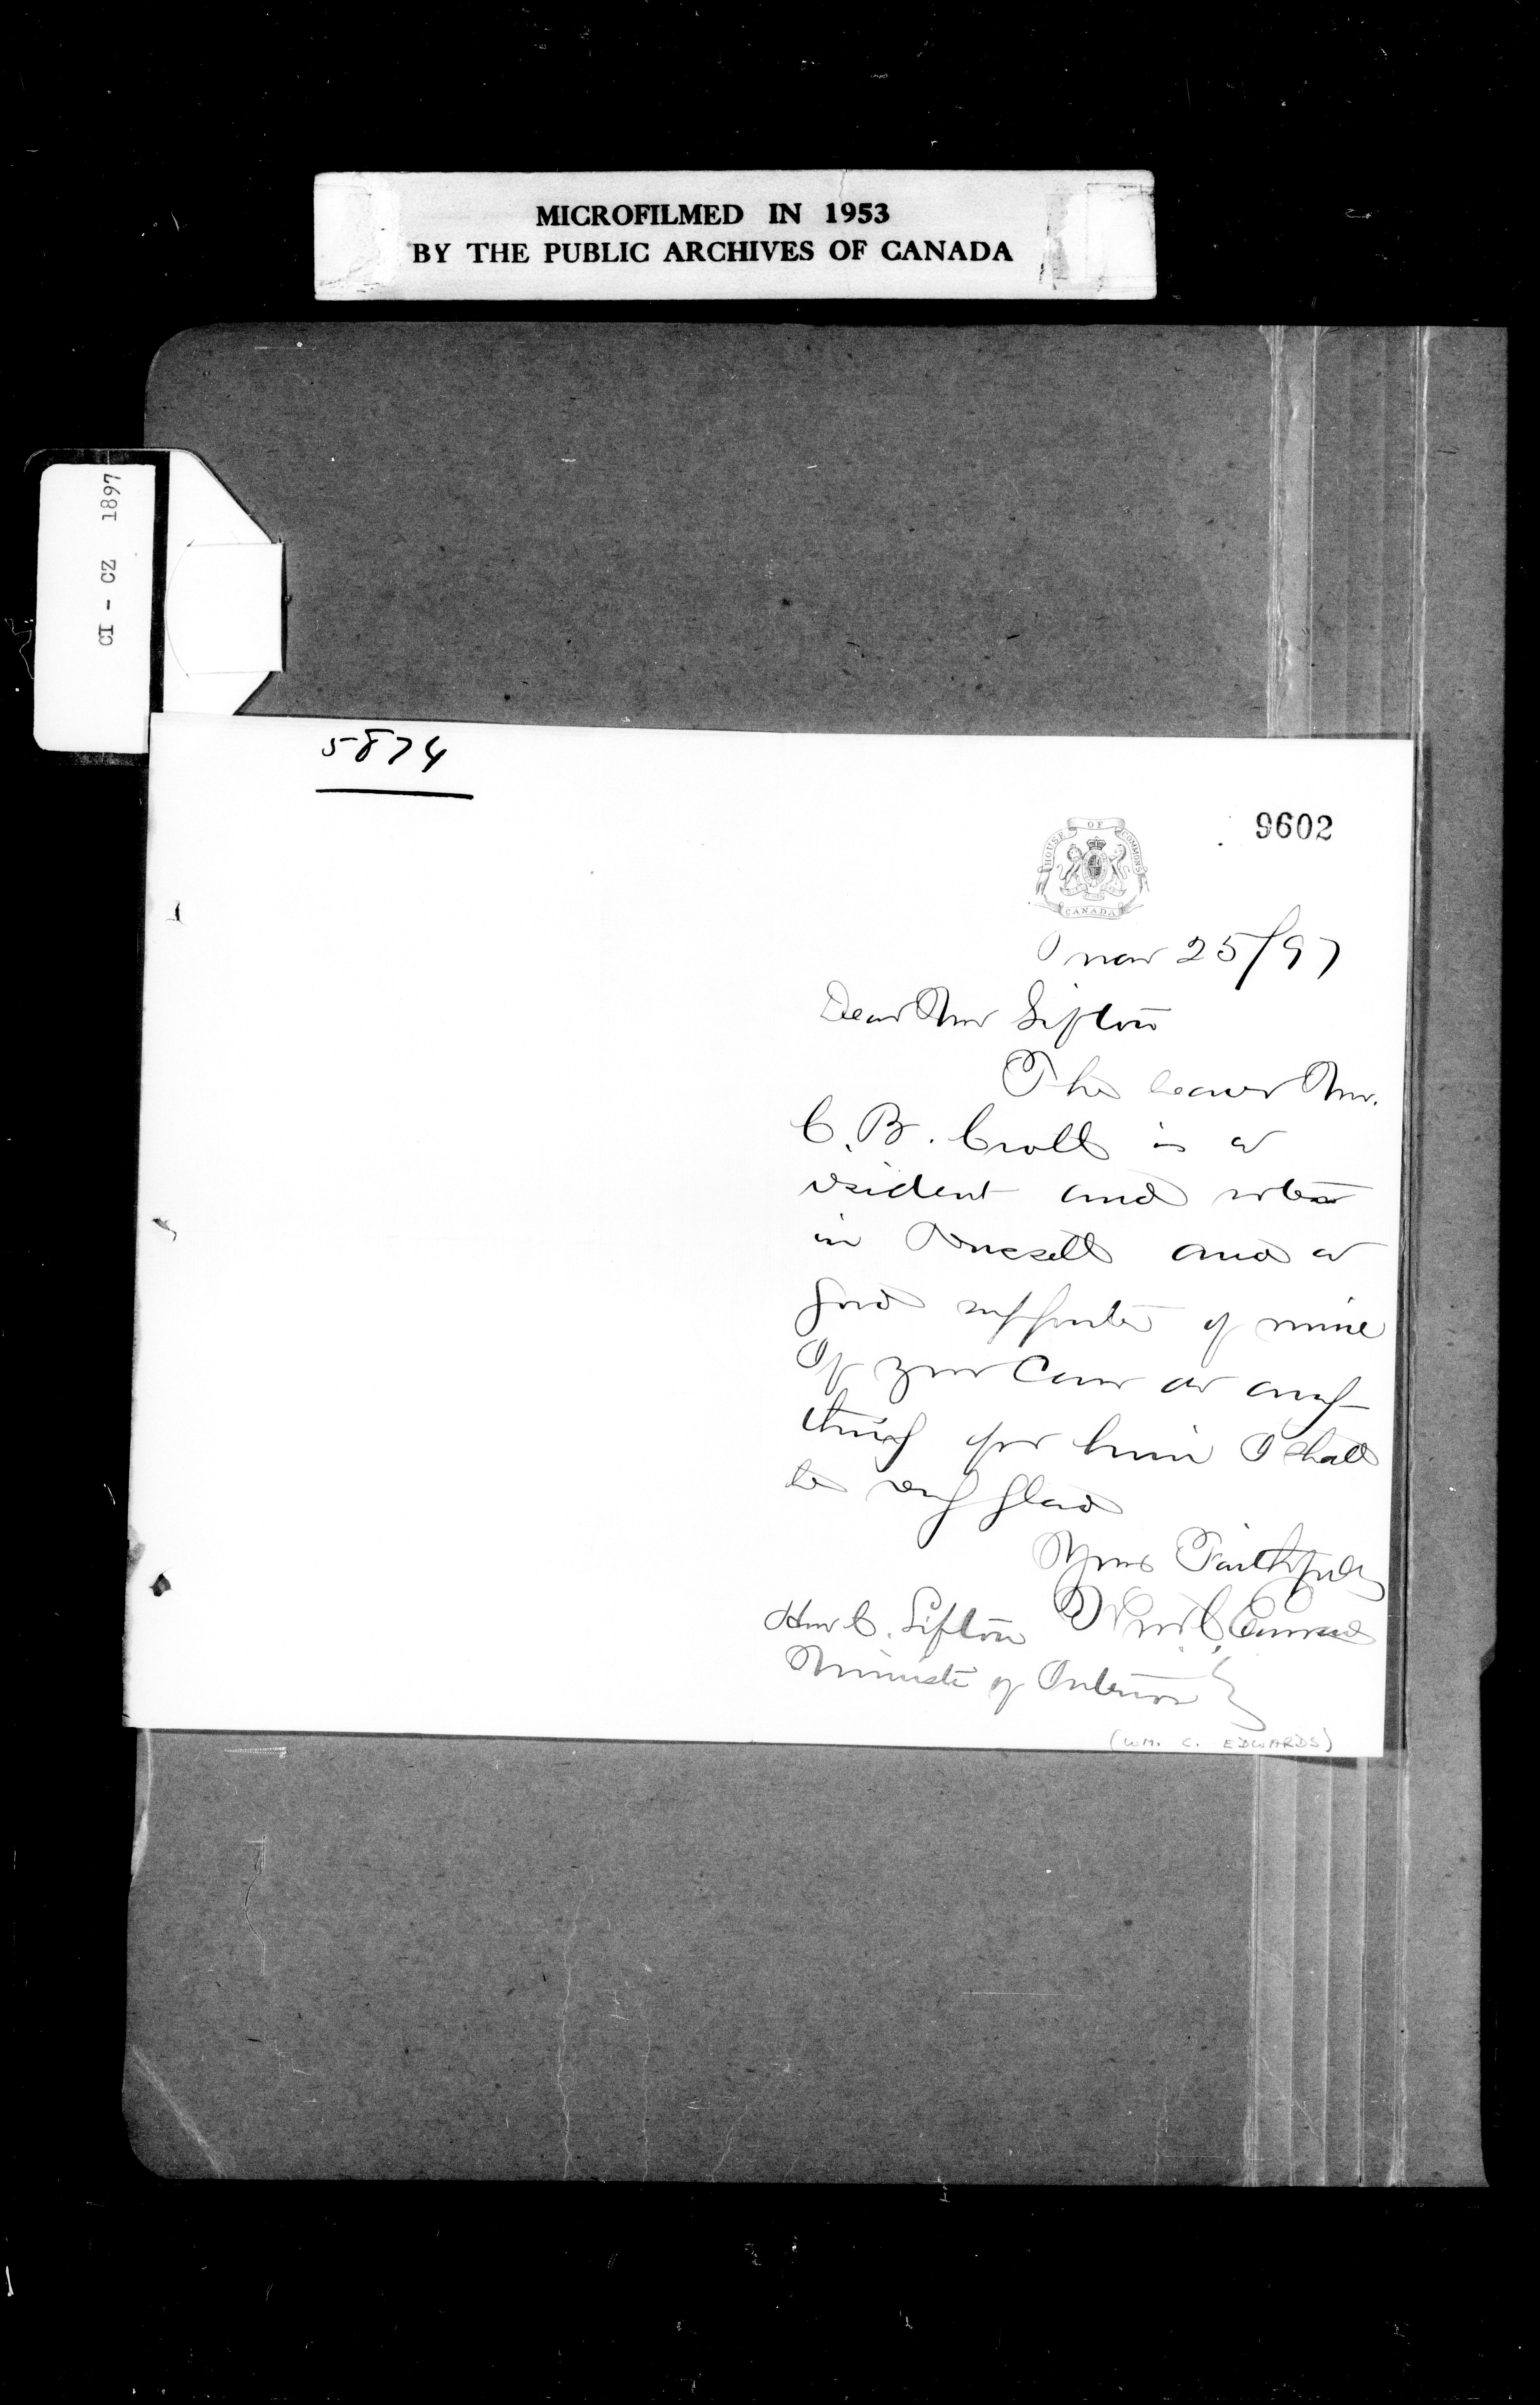 MICROFILMED IN 1953
BY THE PUBLIC ARCHIVES OF CANADA
CI - CZ 1897
5874
9602
HOUSE OF COMMONS
CANADA
Nov 25/97
Dear Mr Sifton
The bearer Mr.
C. B. Croll is a
resident and voter
in Russell and a
good supporter of mine
If you can do any-
thing for him I shall
be very glad
Yours Faithfully
Wm C. Edwards
Hon C. Sifton
Minister of Interior
(WM. C. EDWARDS)